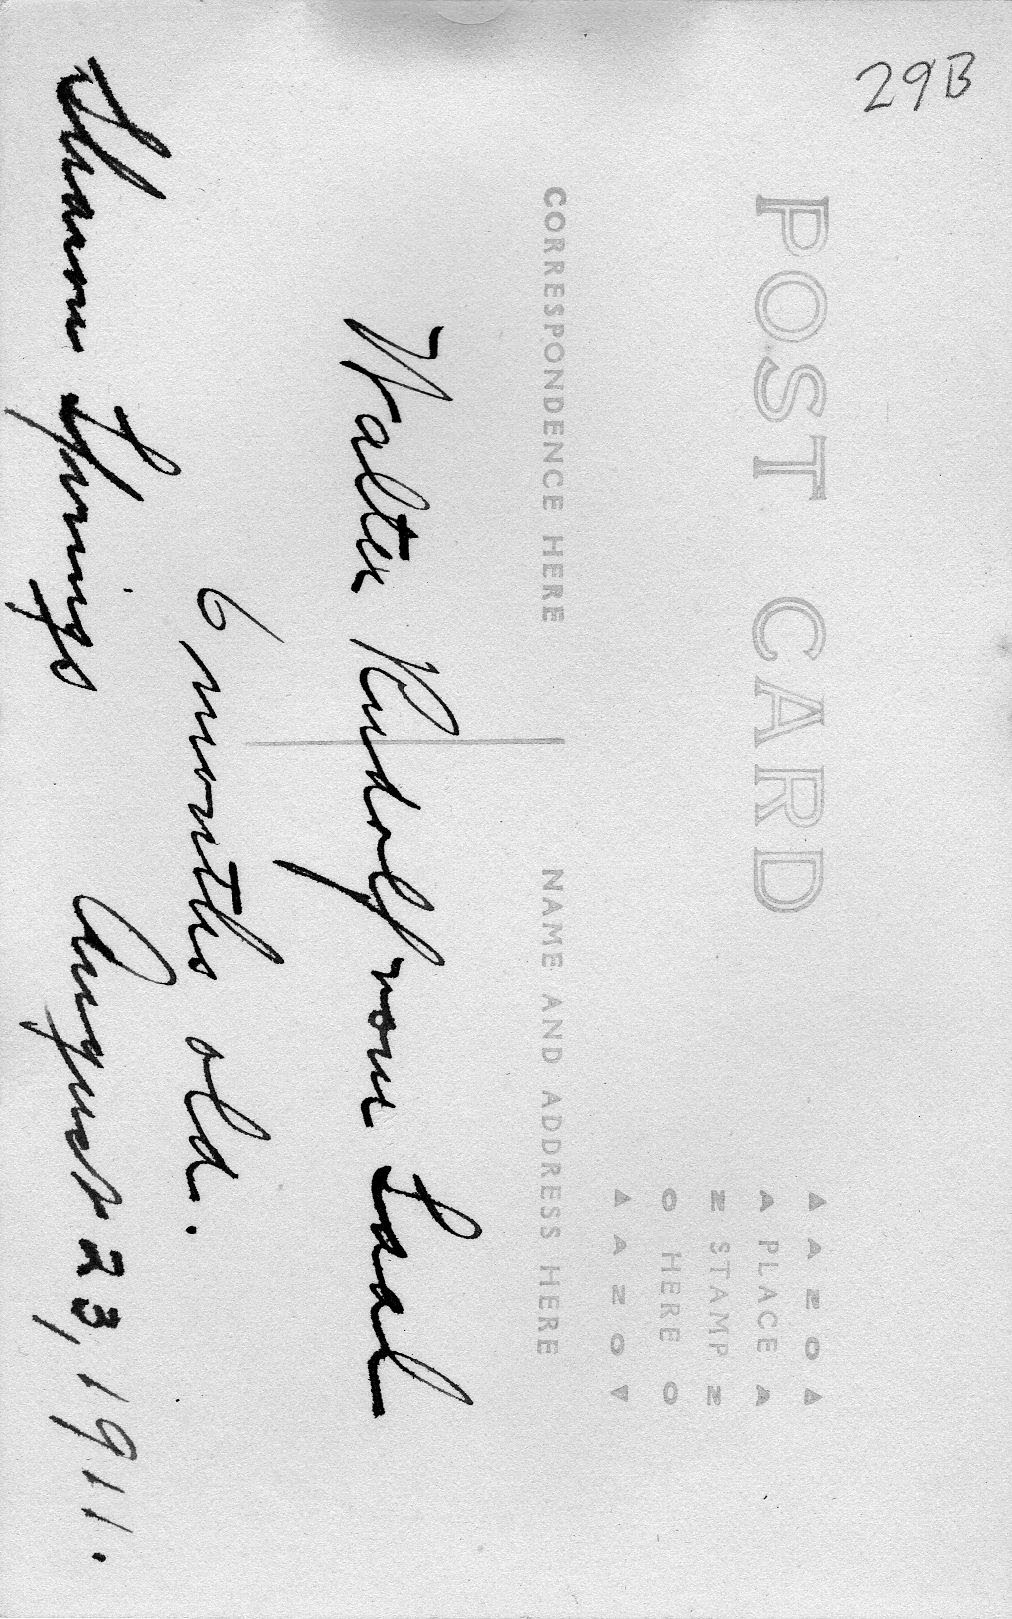 29B
POST CARD
▲ A Z O ▲
A PLACE A
Z STAMP Z
O HERE O
▲ A Z O ▼
CORRESPONDENCE HERE
NAME AND ADDRESS HERE
Walter Rudolf vom Saal
6 months old.
Sharon Springs August 23, 1911.